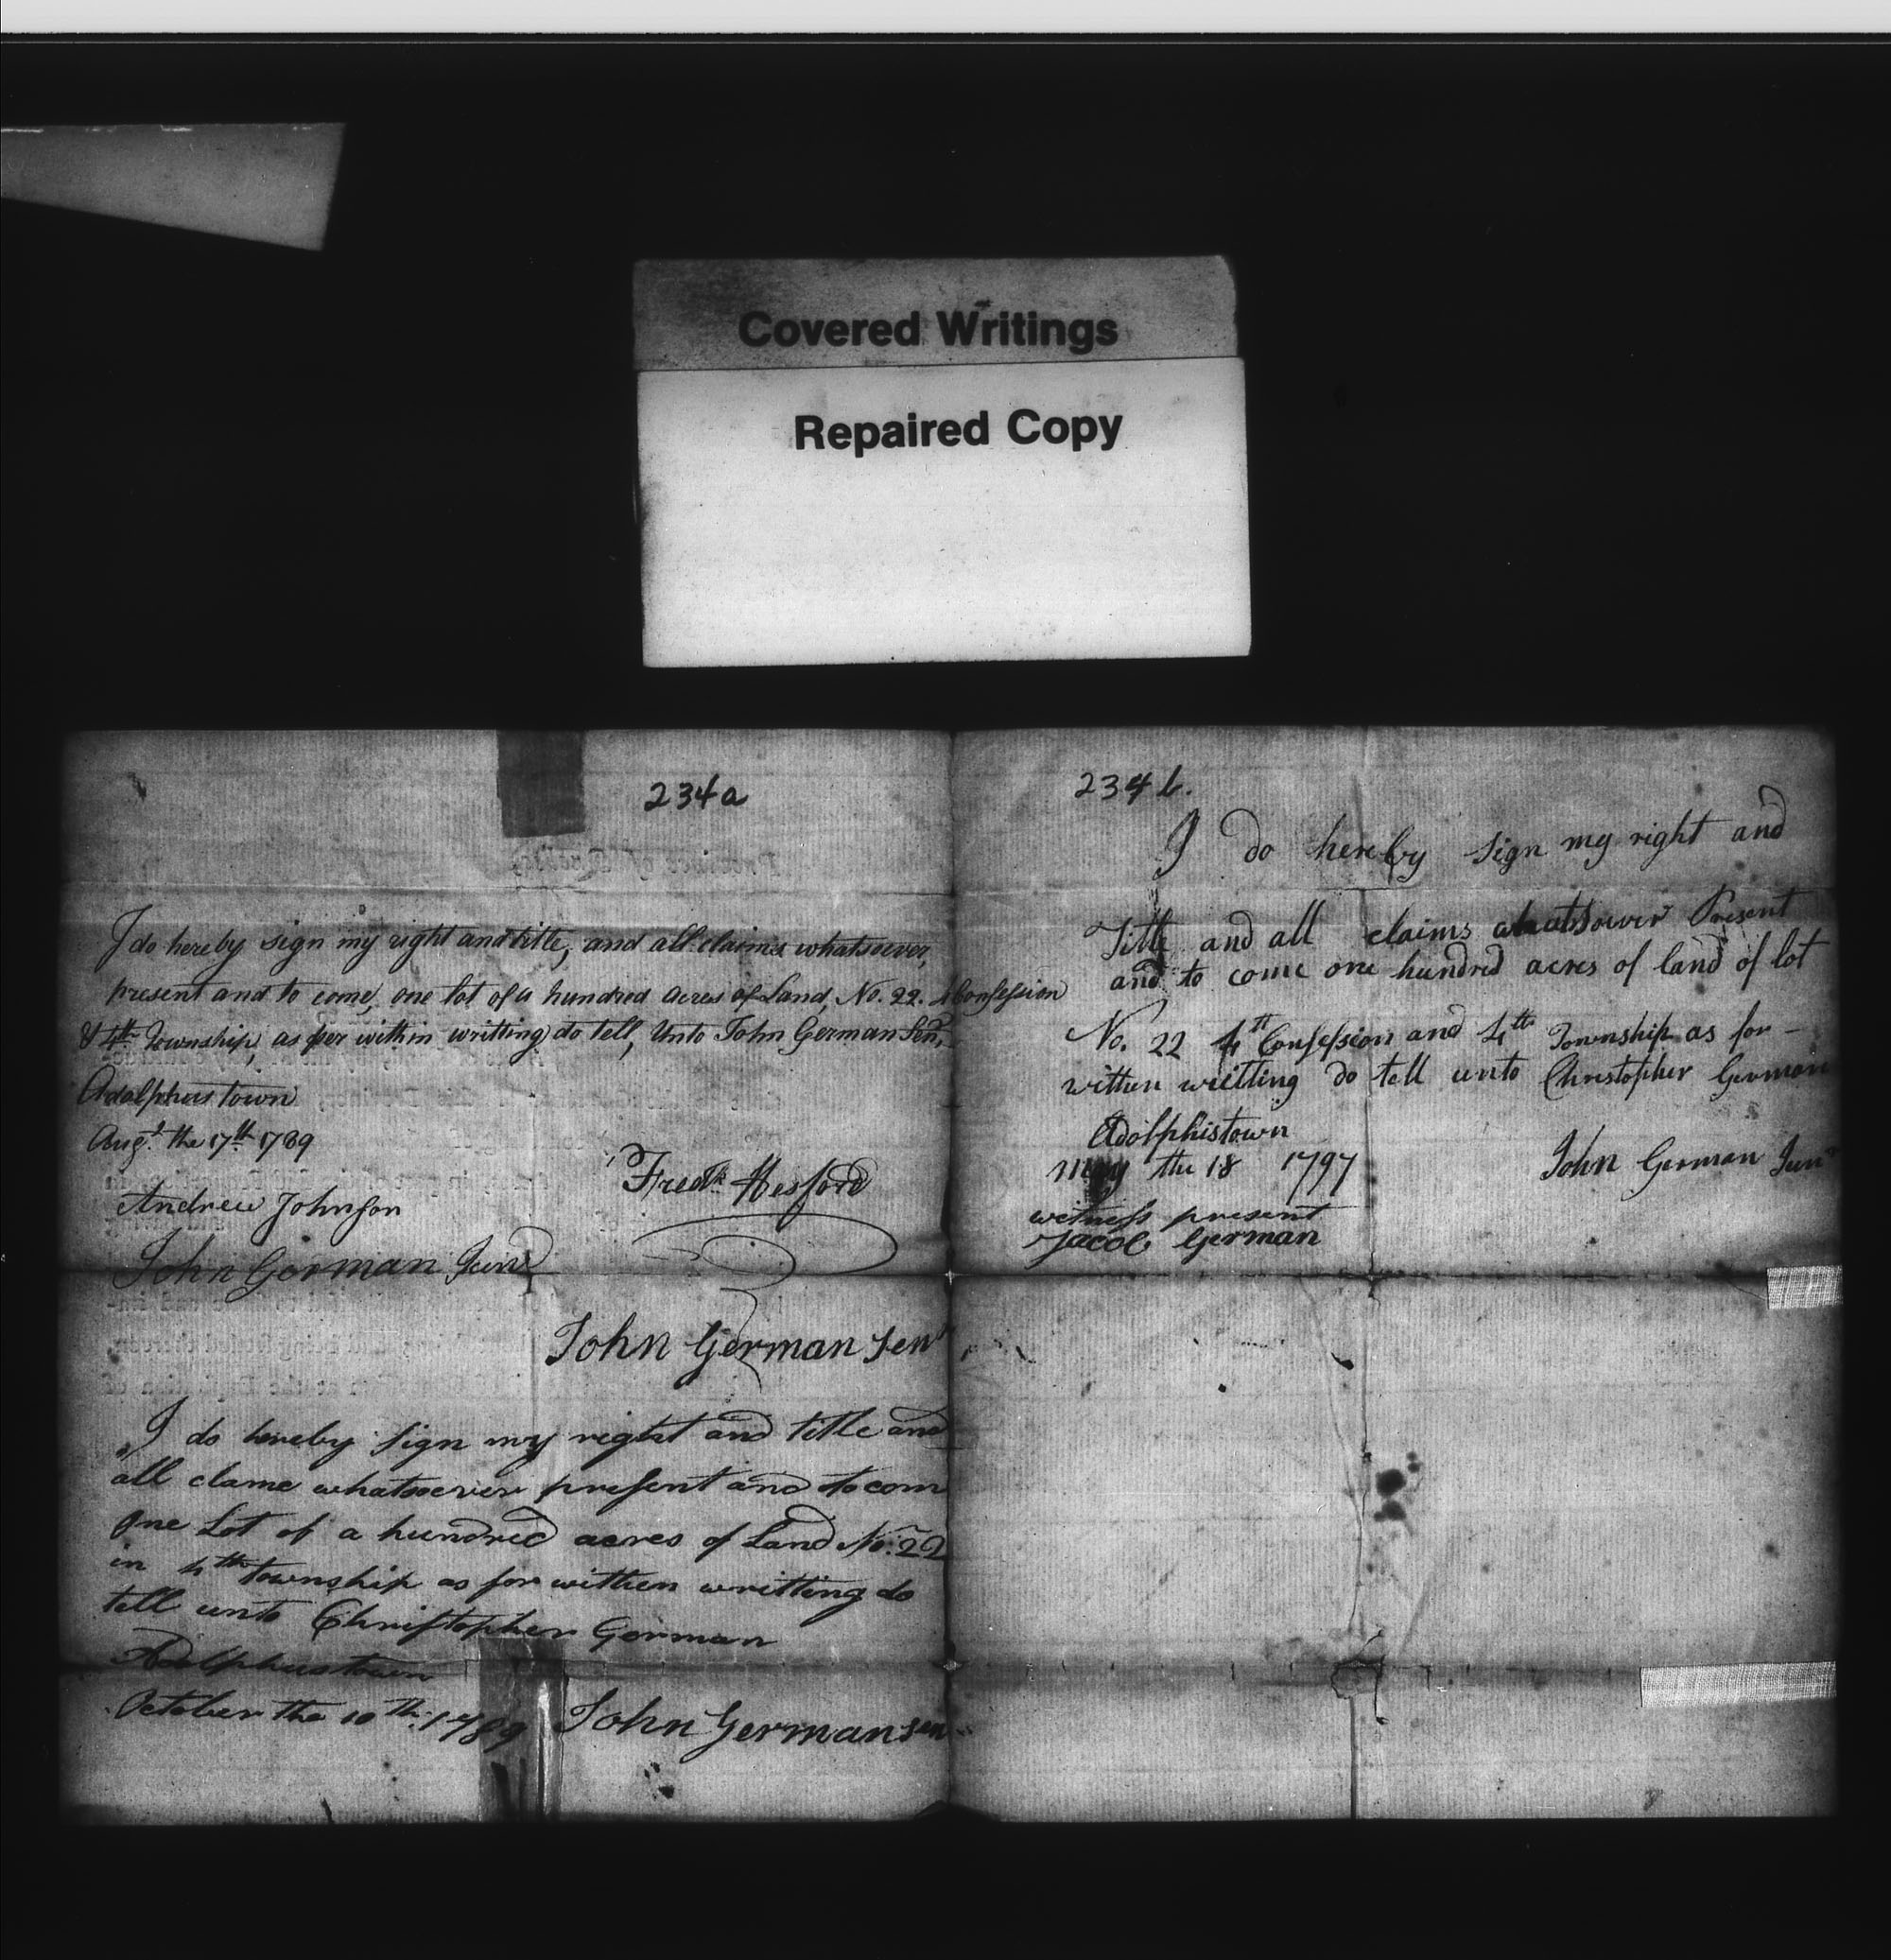 Covered Writings
Repaired Copy
234a
I do hereby sign my right and title, and all claims whatsoever,
present and to come, one lot of a hundred acres of Land, No. 22. 4 Consession
& 4th Township, as per within writting do tell, Unto John German Sen,
Adolphustown
Augt. the 17th 1789
Fredk Hesford
Andrew Johnson
John German Jun
John German Senr
I do hereby sign my right and title and
all clame whatsoever present and to com
One Lot of a hundred acres of Land No. 22
in 4th township as for withen writting do
tell unto Christopher German
Adolphustown
October the 10th 1789 John German sen
234 b.
I do hereby sign my right and
Title and all claims whatsower Present
and to come one hundred acres of land of lot
No. 22 4th Consession and 4th Township as for -
withen writting do tell unto Christopher German
Adolphistown
may the 18 1797
John German Junr
witness present
Jacob German